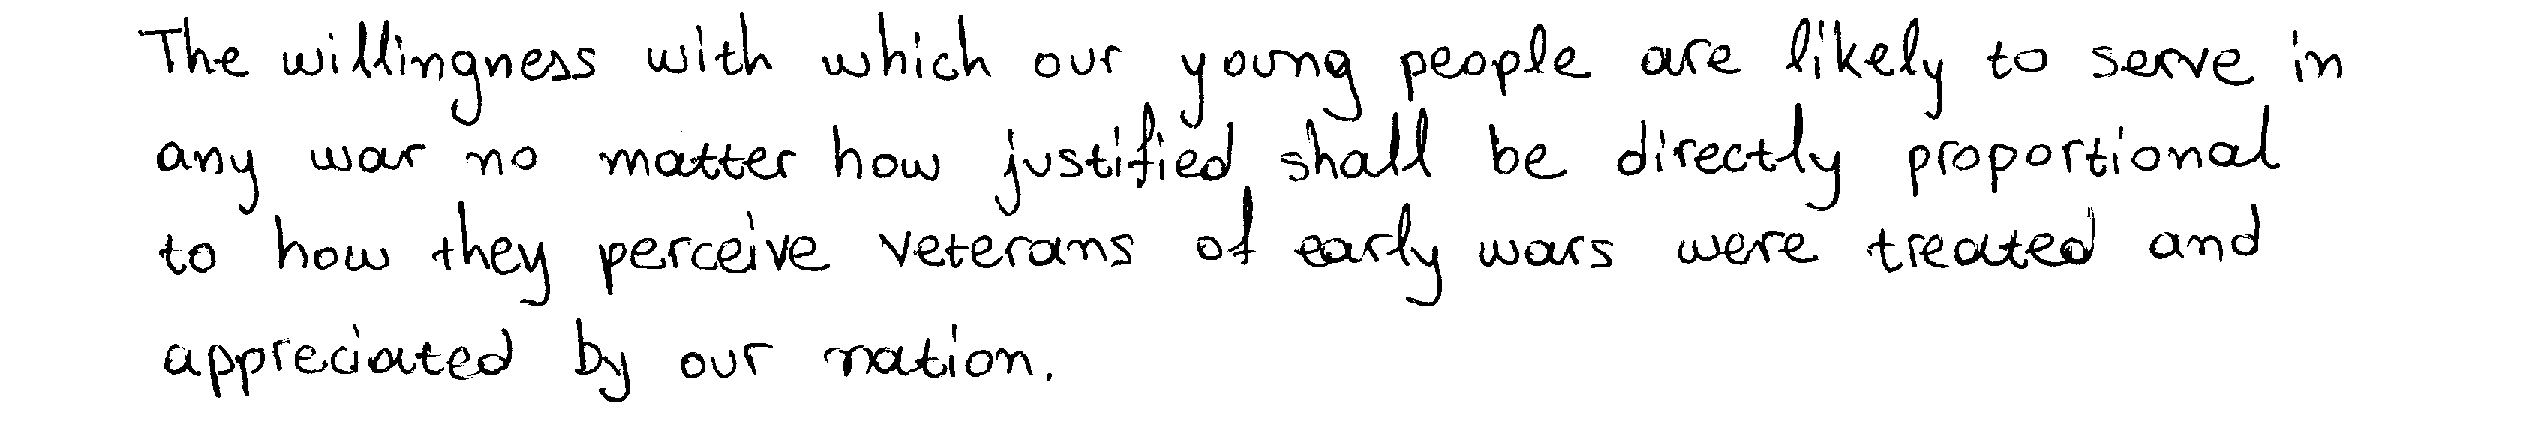 The willingness with which our young people are likely to serve in
any war no matter how justified shall be directly proportional
to how they perceive veterans of early wars were treated and
appreciated by our nation.